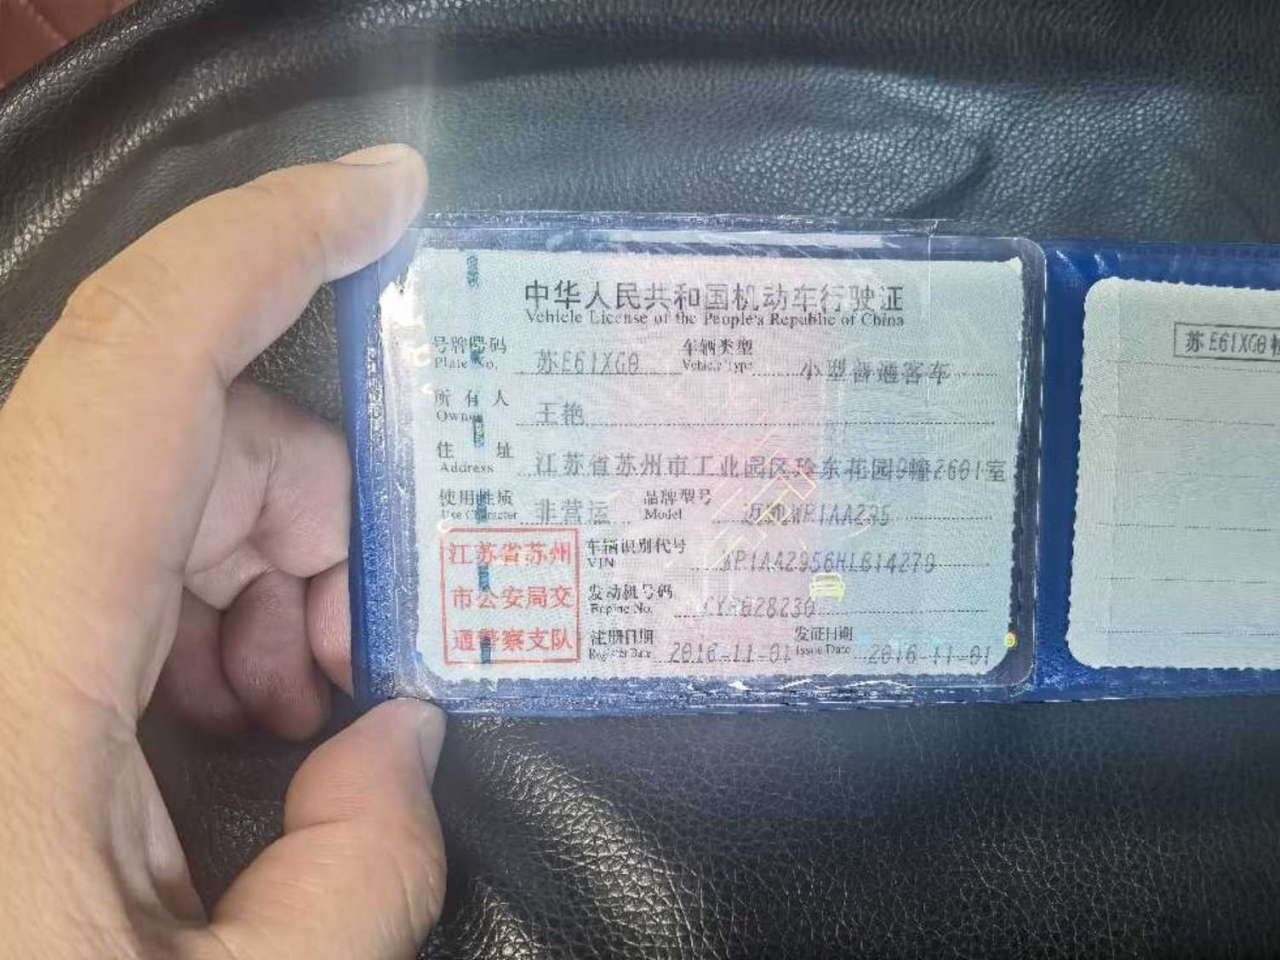 中华人民共和国机动车行驶证
Vehicle License of the People's Republic of China
号牌号码 苏E61XG0 车辆类型 小型普通客车
Plate No. Vehicle Type
所有人 王艳
Owner
住址 江苏省苏州市工业园区玲东花园9幢2601室
Address
使用性质 非营运 品牌型号 WP1AA295
Use Character Model
江苏省苏州
市公安局交
通警察支队
车辆识别代号
VIN
发动机号码
Engine No.
注册日期 2016-11-01 发证日期 2016-11-01
Register Date Issue Date
苏E61XG0